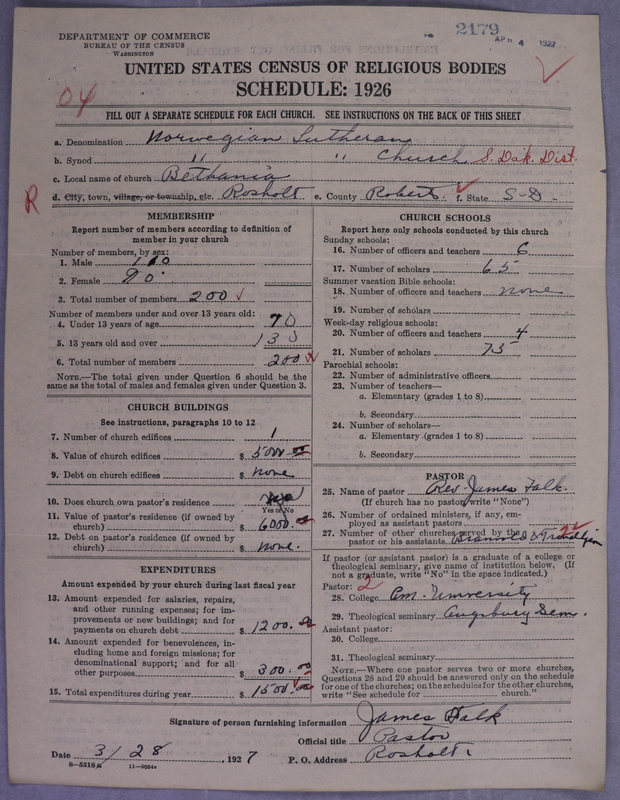 DEPARTMENT OF COMMERCE
BUREAU OF THE CENSUS
WASHINGTON
2179
APR 4 1927
UNITED STATES CENSUS OF RELIGIOUS BODIES
SCHEDULE: 1926
04
FILL OUT A SEPARATE SCHEDULE FOR EACH CHURCH. SEE INSTRUCTIONS ON THE BACK OF THIS SHEET
a. Denomination Norwegian Lutheran
b. Synod " " Church S. Dak. Dist.
c. Local name of church Bethania
R
d. City, town, village, or township, etc. Rosholt e. County Roberts f. State S-D-
MEMBERSHIP
Report number of members according to definition of
member in your church
Number of members, by sex:
1. Male 110
2. Female 90
3. Total number of members 200
Number of members under and over 13 years old:
4. Under 13 years of age 70
5. 13 years old and over 130
6. Total number of members 200
NOTE.—The total given under Question 6 should be the
same as the total of males and females given under Question 3.
CHURCH BUILDINGS
See instructions, paragraphs 10 to 12
7. Number of church edifices 1
8. Value of church edifices $ 5000.00
9. Debt on church edifices $ none
10. Does church own pastor's residence
Yes or No
11. Value of pastor's residence (if owned by
church) $ 6000.00
12. Debt on pastor's residence (if owned by
church) $ none.
EXPENDITURES
Amount expended by your church during last fiscal year
13. Amount expended for salaries, repairs,
and other running expenses; for im-
provements or new buildings; and for
payments on church debt $ 1200.00
14. Amount expended for benevolences, in-
cluding home and foreign missions; for
denominational support; and for all
other purposes $ 300.00
15. Total expenditures during year $ 1500.00
CHURCH SCHOOLS
Report here only schools conducted by this church
Sunday schools:
16. Number of officers and teachers 6
17. Number of scholars 65
Summer vacation Bible schools:
18. Number of officers and teachers none
19. Number of scholars
Week-day religious schools:
20. Number of officers and teachers 4
21. Number of scholars 75
Parochial schools:
22. Number of administrative officers
23. Number of teachers—
a. Elementary (grades 1 to 8)
b. Secondary
24. Number of scholars—
a. Elementary (grades 1 to 8)
b. Secondary
PASTOR
25. Name of pastor Rev. James Falk
(If church has no pastor, write "None")
26. Number of ordained ministers, if any, em-
ployed as assistant pastors
27. Number of other churches served by the 2
pastor or his assistants
If pastor (or assistant pastor) is a graduate of a college or
theological seminary, give name of institution below, (If
not a graduate, write "No" in the space indicated.)
Pastor: 2
28. College Em. University
29. Theological seminary Augsburg Sem.
Assistant pastor:
30. College
31. Theological seminary
NOTE.—Where one pastor serves two or more churches,
Questions 28 and 29 should be answered only on the schedule
for one of the churches; on the schedules for the other churches,
write "See schedule for church."
Signature of person furnishing information James Falk
Official title Pastor
Date 3/28, 1927 P. O. Address Rosholt
8—5518a 11—9584